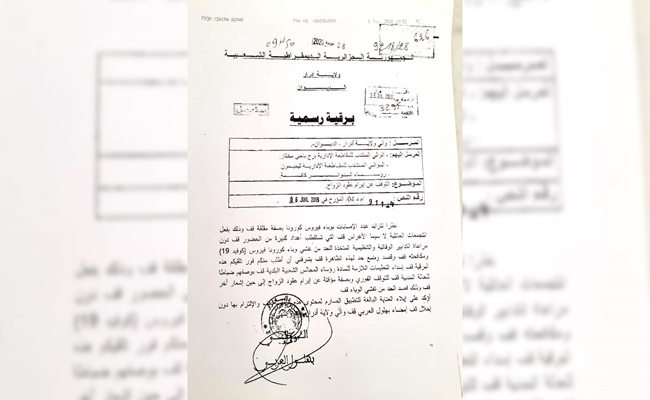 FROM
FAX NO.
09H50
2020
28
636
الجمهورية الجزائرية الديمقراطية الشعبية
ولاية أدرار
الديوان
3295
برقية رسمية
المرسل : والي ولاية أدرار - الديوان.
المرسل إليهم : - الوالي المنتدب للمقاطعة الإدارية برج باجي مختار.
- الوالي المنتدب للمقاطعة الإدارية تيميمون
- رؤساء الدوائر كافة
الموضوع : التوقف عن إبرام عقود الزواج.
رقم النص : 911 /أم د /04 المؤرخ في
نظرا لتزايد عدد الإصابات بوباء فيروس كورونا بصفة مقلقة قف وذلك بفعل
التجمعات العائلية لا سيما الأعراس قف التي تستقطب أعداد كبيرة من الحضور قف دون
مراعاة للتدابير الوقائية والتنظيمية المتخذة للحد من تفشي وباء كورونا فيروس (كوفيد 19)
ومكافحته قف وقصد وضع حد لهذه الظاهرة قف يشرفني أن أطلب منكم فور تلقيكم هذه
البرقية قف إسداء التعليمات اللازمة للسادة رؤساء المجالس الشعبية البلدية قف بوصفهم ضباطا
للحالة المدنية قف للتوقف الفوري وبصفة مؤقتة عن إبرام عقود الزواج إلى حين إشعار آخر
قف وذلك قصد الحد من تفشي الوباء قف
أؤكد على إيلاء العناية البالغة للتطبيق الصارم لمحتوى قف والإلتزام بها دون
إخلال قف إمضاء بهلول العربي قف والي ولاية أدرار
الوالي
بهلول العربي